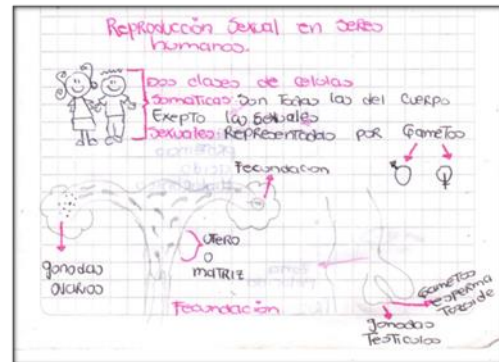 Reproducción Sexual en seres
humanos.
Dos clases de celulas
Somaticas: Son Todas las del cuerpo
Exepto las sexuales
Sexuales: Representadas por Gametos
Fecundacion
Utero
o
matriz
gonadas
ovarios
Fecundación
Gametos
esperma
Tozoide
gonadas
Testiculos